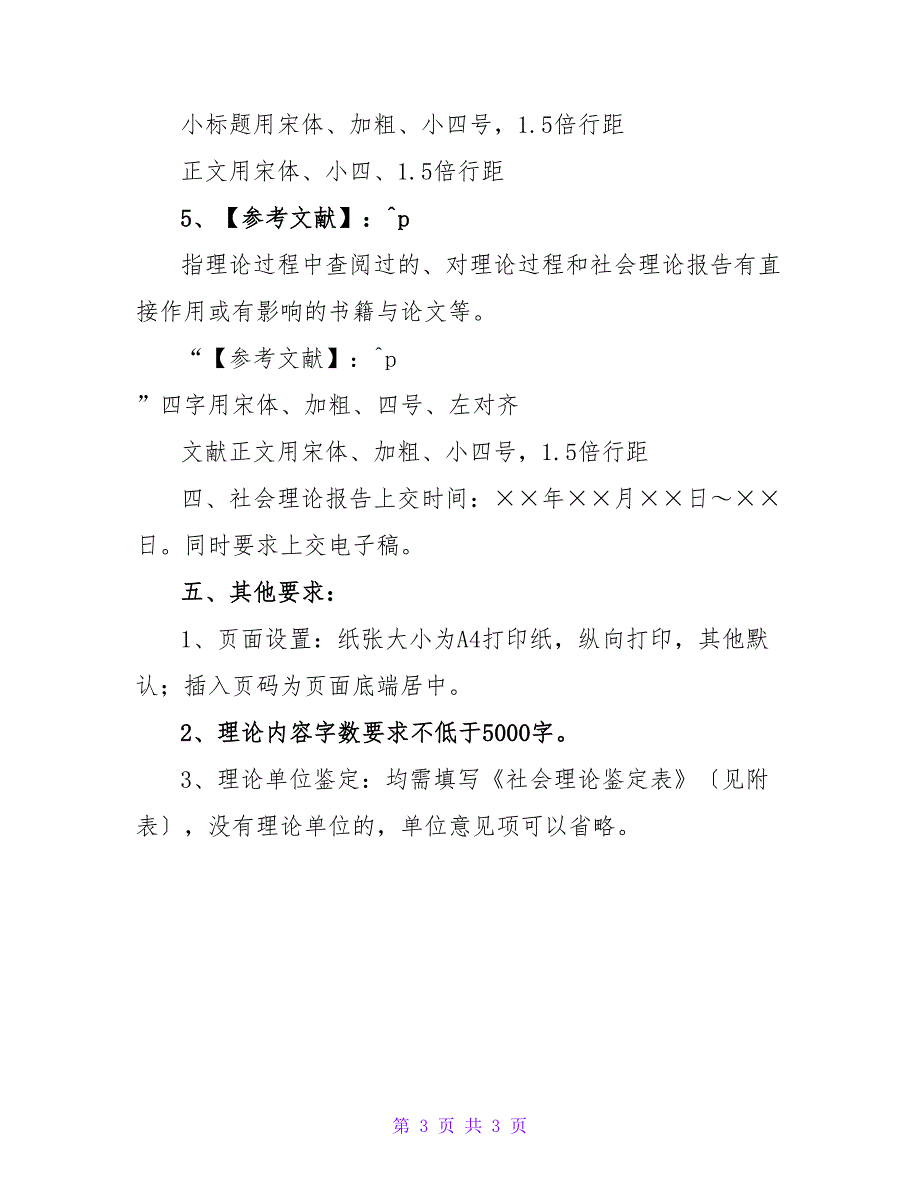 小标题用宋体、加粗、小四号，1.5倍行距
正文用宋体、小四、1.5倍行距
5、【参考文献】：^p
指理论过程中查阅过的、对理论过程和社会理论报告有直
接作用或有影响的书籍与论文等。
“【参考文献】：^p
”四字用宋体、加粗、四号、左对齐
文献正文用宋体、加粗、小四号，1.5倍行距
四、社会理论报告上交时间：××年××月××日～××
日。同时要求上交电子稿。
五、其他要求：
1、页面设置：纸张大小为A4打印纸，纵向打印，其他默
认；插入页码为页面底端居中。
2、理论内容字数要求不低于5000字。
3、理论单位鉴定：均需填写《社会理论鉴定表》〔见附
表〕，没有理论单位的，单位意见项可以省略。
第 3 页 共 3 页